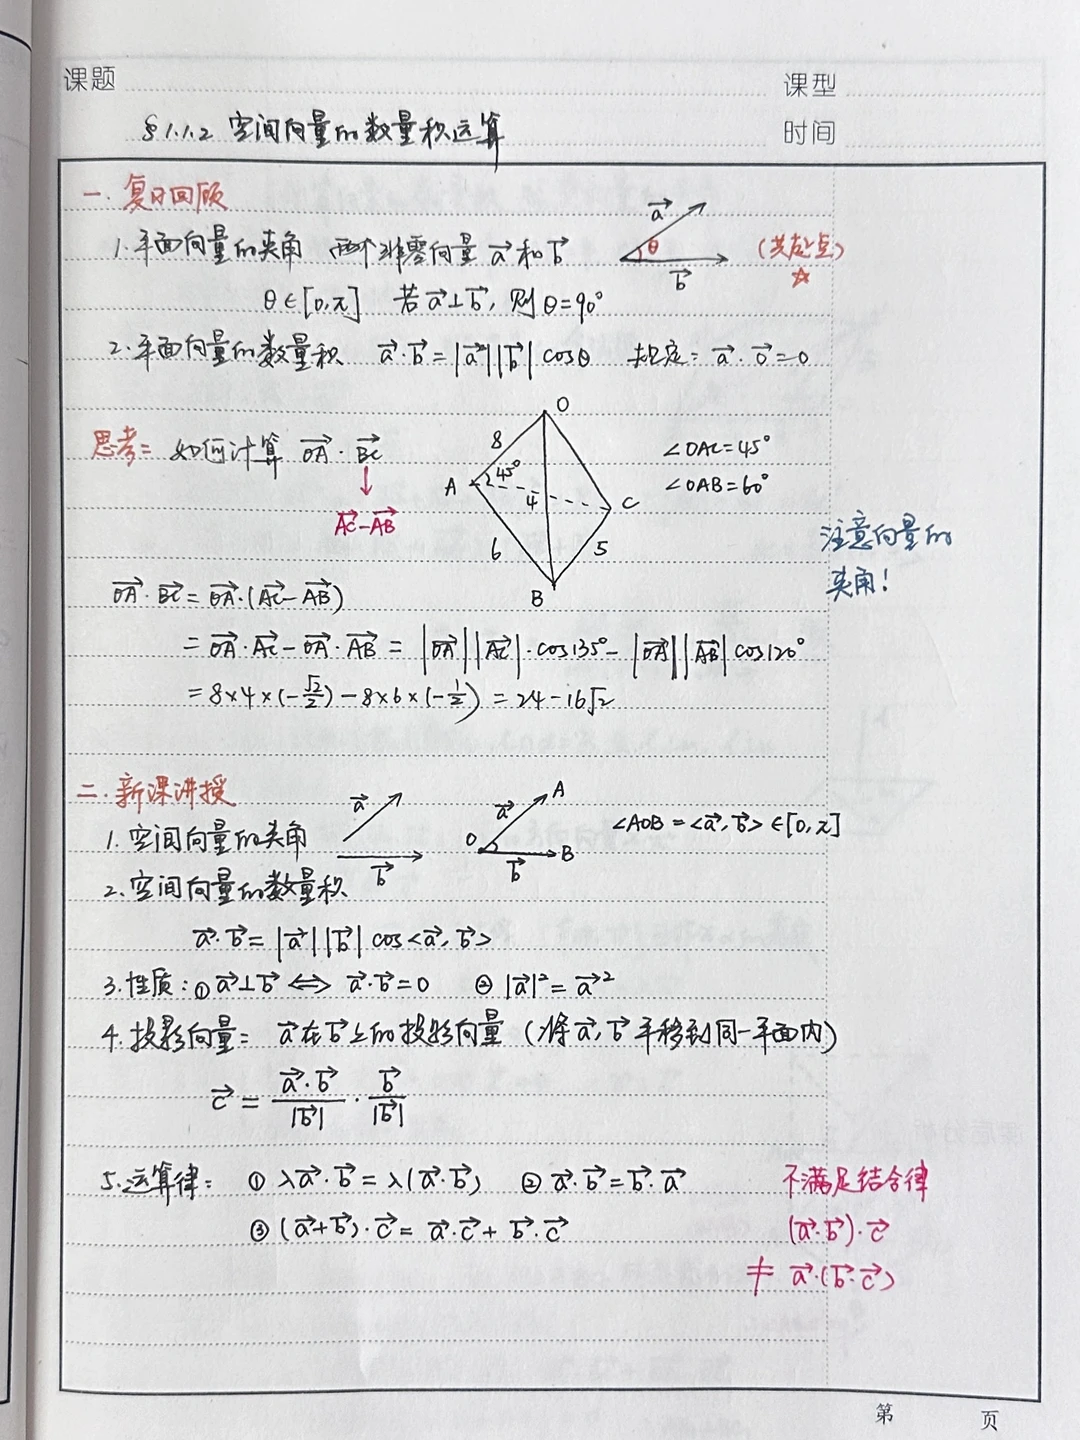 课题
课型
§1.1.2 空间向量的数量积运算
时间
一. 复习回顾
1. 平面向量的夹角 两个非零向量 a⃗ 和 b⃗
a⃗ θ b⃗ (共起点) ☆
θ∈[0,π] 若 a⃗⊥b⃗, 则 θ=90°
2. 平面向量的数量积 a⃗·b⃗=|a⃗||b⃗| cosθ 规定: a⃗·0⃗=0
思考: 如何计算 OA⃗·BC⃗
↓
AC⃗-AB⃗
O
8
A 45° 4 C
6 5
B
∠OAC=45°
∠OAB=60°
注意向量的
夹角!
OA⃗·BC⃗=OA⃗·(AC⃗-AB⃗)
=OA⃗·AC⃗-OA⃗·AB⃗=|OA⃗||AC⃗|·cos135°-|OA⃗||AB⃗|cos120°
=8×4×(-√2/2)-8×6×(-1/2)=24-16√2
二. 新课讲授
1. 空间向量的夹角
a⃗ b⃗
a⃗ A O b⃗ B
∠AOB=<a⃗,b⃗>∈[0,π]
2. 空间向量的数量积
a⃗·b⃗=|a⃗||b⃗| cos<a⃗,b⃗>
3. 性质: ① a⃗⊥b⃗ ⟺ a⃗·b⃗=0 ② |a⃗|²=a⃗²
4. 投影向量: a⃗在b⃗上的投影向量 (将a⃗,b⃗平移到同一平面内)
c⃗ = (a⃗·b⃗)/|b⃗| · b⃗/|b⃗|
5. 运算律: ① λa⃗·b⃗=λ(a⃗·b⃗) ② a⃗·b⃗=b⃗·a⃗
③ (a⃗+b⃗)·c⃗=a⃗·c⃗+b⃗·c⃗
不满足结合律
(a⃗·b⃗)·c⃗
≠ a⃗·(b⃗·c⃗)
第 页